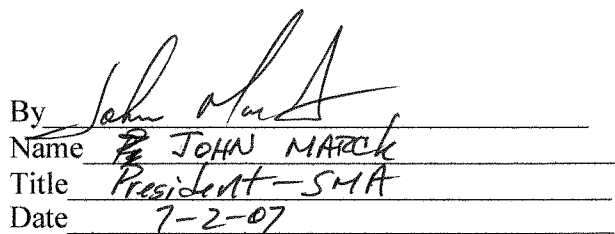 By John Marck
Name JOHN MARCK
Title President - SMA
Date 7-2-07